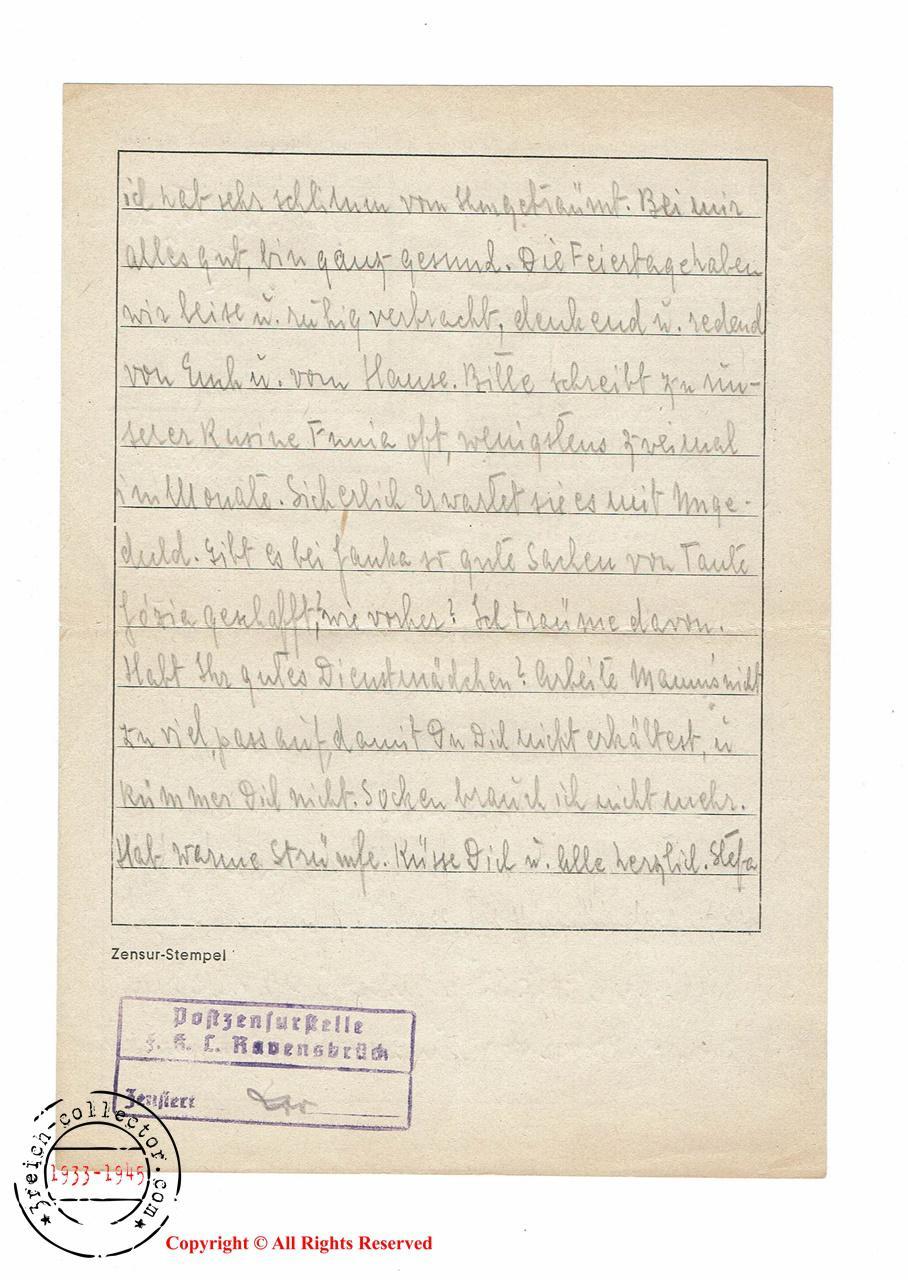 ich hab sehr schlimm vom Ihm geträumt. Bei mir
alles gut, bin ganz gesund. Die Feiertage haben
wir leise u. ruhig verbracht, denkend u. redend
von Euch u. vom Hause. Bitte schreibt zu un-
serer Kusine Funia oft, wenigstens zweimal
im Monate. Sicherlich erwartet sie es mit Unge-
duld. Gibt es bei Janka so gute Sachen von Tante
Józia geschafft, wie vorher? Ich träume davon.
Habt Ihr gutes Dienstmädchen? Arbeite nicht
zu viel, pass auf, damit Du Dich nicht erkältest, u
kümmer Dich nicht. Socken brauch ich nicht mehr.
Hab warme Strümfe. Küsse Dich u. Alle herzlich. Stefa
Zensur-Stempel
Postzensurstelle
F. K. L. Ravensbrück
Zensiert
3reich-collector.com
1933-1945
Copyright © All Rights Reserved